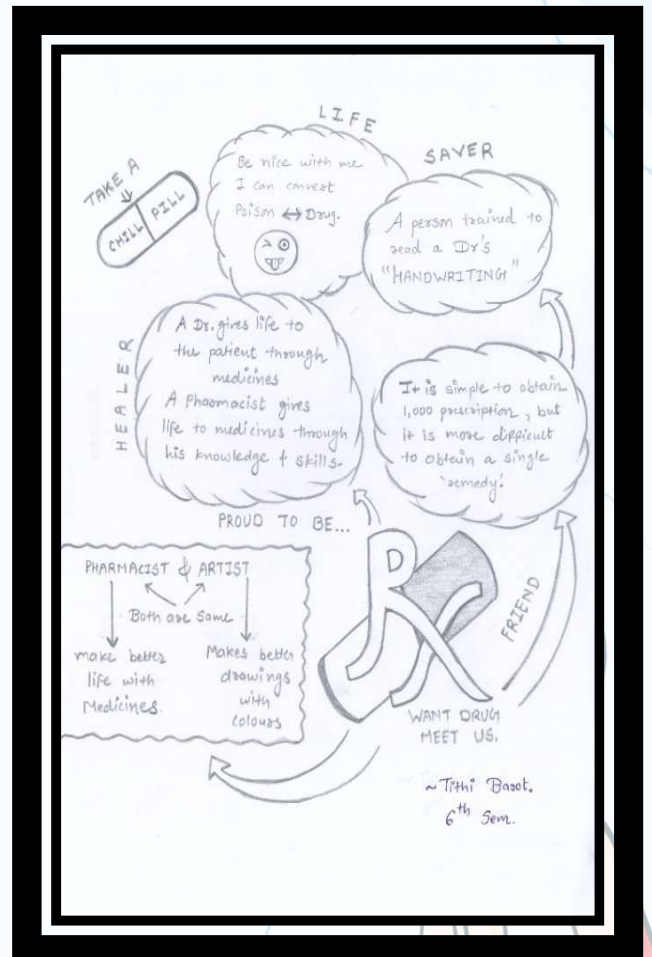 LIFE
SAVER
TAKE A
CHILL PILL
Be nice with me
I can convert
Poison ↔ Drug.
A person trained to
read a Dr's
"HANDWRITING"
HEALER
A Dr. gives life to
the patient through
medicines
A Pharmacist gives
life to medicines through
his knowledge & skills.
It is simple to obtain
1,000 prescription, but
it is more difficult
to obtain a single
'remedy'.
PROUD TO BE...
Rx
FRIEND
PHARMACIST & ARTIST
Both are same
make better
life with
Medicines.
Makes better
drawings
with
colours
WANT DRUG
MEET US.
~ Tithi Barot.
6th Sem.